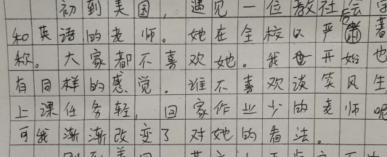 初到美国，遇见一位教社会学
和英语的老师。她在全校以严肃著
称。大家都不喜欢她。我开始也
有同样的感觉。谁不喜欢谈笑风生
上课任务轻，回家作业少的老师呢
可我渐渐改变了对她的看法。